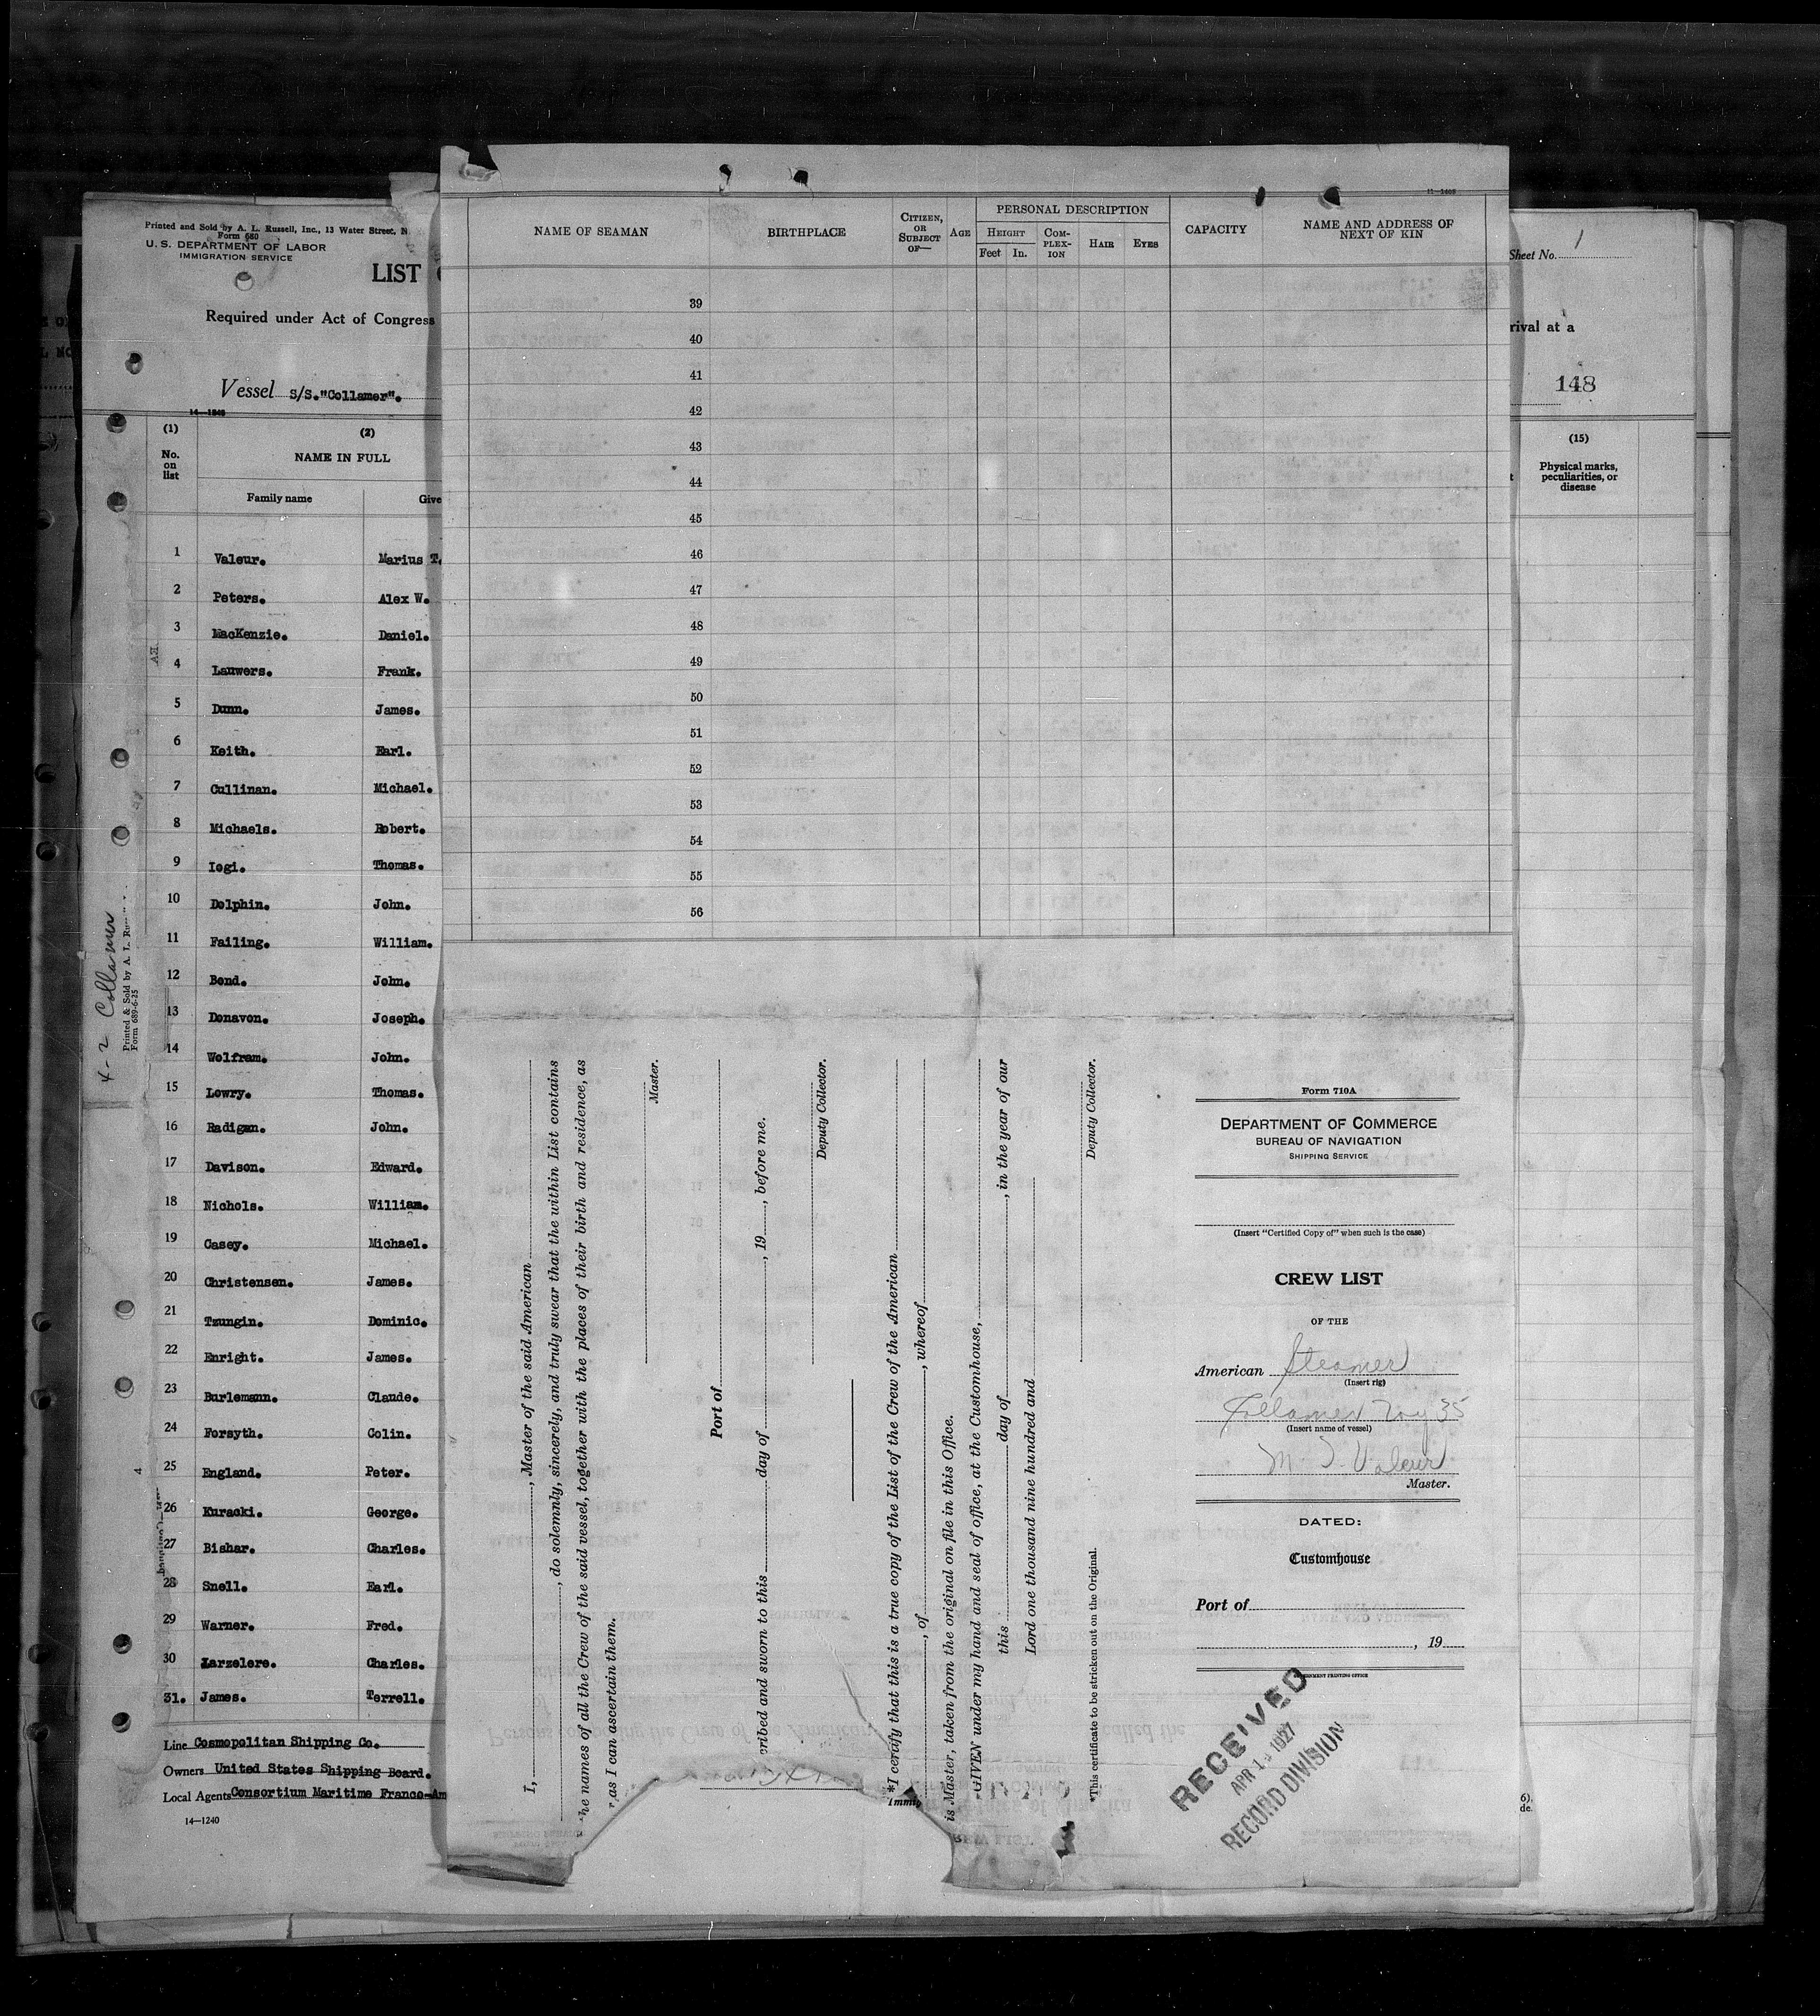 Printed and Sold by A. L. Russell, Inc., 13 Water Street, N
Form 680
U. S. DEPARTMENT OF LABOR
IMMIGRATION SERVICE
LIST
Required under Act of Congress
Vessel S/S."Collamer".
14—1240
(1)
No. on list
(2)
NAME IN FULL
Family name Give
1 Valeur. Marius T.
2 Peters. Alex W.
3 MacKenzie. Daniel.
4 Lauwers. Frank.
5 Dunn. James.
6 Keith. Earl.
7 Cullinan. Michael.
8 Michaels. Robert.
9 Iogi. Thomas.
10 Dolphin. John.
11 Failing. William.
12 Bond. John.
13 Donavon. Joseph.
14 Wolfram. John.
15 Lowry. Thomas.
16 Radigan. John.
17 Davison. Edward.
18 Nichols. William.
19 Casey. Michael.
20 Christensen. James.
21 Tzungin. Dominic.
22 Enright. James.
23 Burlemann. Claude.
24 Forsyth. Colin.
25 England. Peter.
26 Kuracki. George.
27 Bishar. Charles.
28 Snell. Earl.
29 Warner. Fred.
30 Larzelere. Charles.
31. James. Terrell.
Line Cosmopolitan Shipping Co.
Owners United States Shipping Board.
Local Agents Consortium Maritime Franco-Am
14—1240
4-2 Collamer
Printed & Sold by A. L. Ru
Form 689-6-25
11—1408
NAME OF SEAMAN
BIRTHPLACE
CITIZEN, OR SUBJECT OF—
AGE
PERSONAL DESCRIPTION
HEIGHT
Feet In.
COM-PLEX-ION
HAIR
EYES
CAPACITY
NAME AND ADDRESS OF NEXT OF KIN
39
40
41
42
43
44
45
46
47
48
49
50
51
52
53
54
55
56
I, , Master of the said American
, do solemnly, sincerely, and truly swear that the within List contains
he names of all the Crew of the said vessel, together with the places of their birth and residence, as
r as I can ascertain them.
Master.
Port of
cribed and sworn to this day of , 19 , before me.
Deputy Collector.
*I certify that this is a true copy of the List of the Crew of the American
, of , whereof
is Master, taken from the original on file in this Office.
GIVEN under my hand and seal of office, at the Customhouse,
this day of , in the year of our
Lord one thousand nine hundred and
Deputy Collector.
*This certificate to be stricken out on the Original.
Immig
Form 710A
DEPARTMENT OF COMMERCE
BUREAU OF NAVIGATION
SHIPPING SERVICE
(Insert "Certified Copy of" when such is the case)
CREW LIST
OF THE
American Steamer
(Insert rig)
Collamer Voy 35
(Insert name of vessel)
M. T. Valeur
Master.
DATED:
Customhouse
Port of
, 19
RNMENT PRINTING OFFICE
RECEIVED
APR 1 1927
RECORD DIVISION
Sheet No. 1
rival at a
148
(15)
Physical marks, peculiarities, or disease
6).
de.